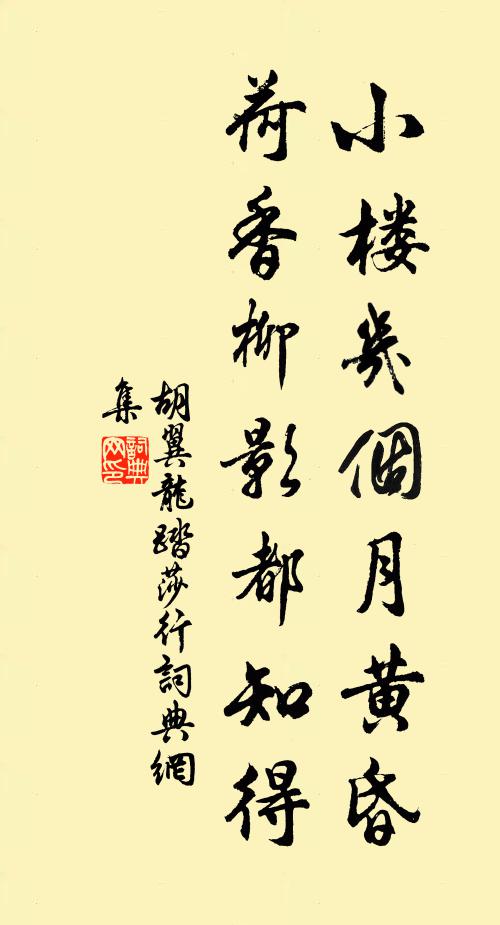 小楼幾個月黄昏
荷香柳影都知得
胡翼龍踏莎行詞典網
集
詞典网印